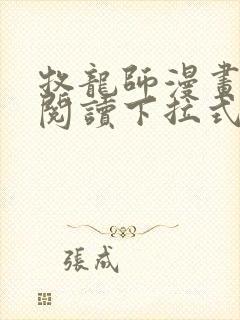 牧龍師漫畫
閱讀下拉式
張成